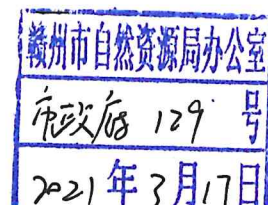 赣州市自然资源局办公室
市政府 129 号
2021年3月17日